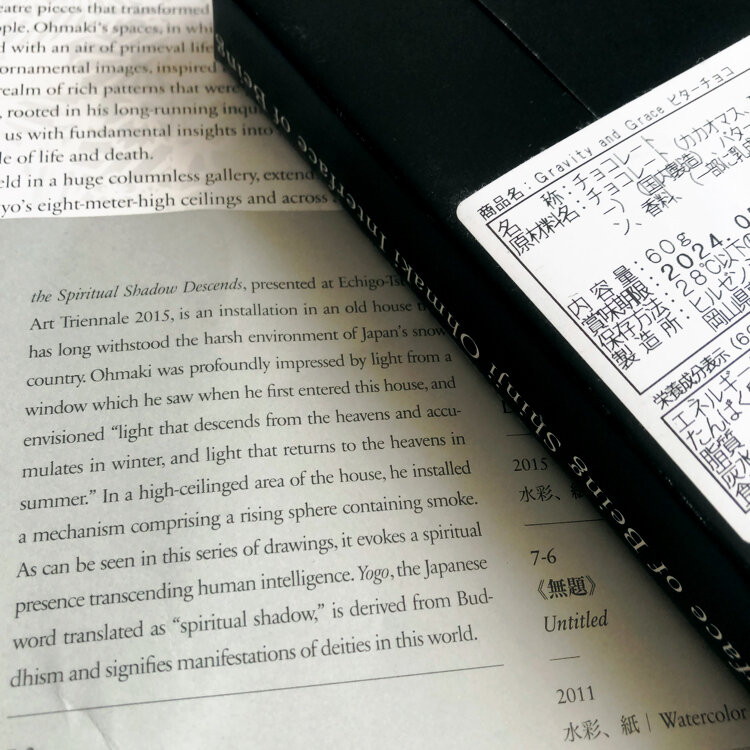 atre pieces that transformed
ple. Ohmaki's spaces, in whi
d with an air of primeval life
ornamental images, inspired
realm of rich patterns that were
, rooted in his long-running inqu
us with fundamental insights into
le of life and death.
eld in a huge columnless gallery, extend
yo's eight-meter-high ceilings and across
the Spiritual Shadow Descends, presented at Echigo-Tsu
Art Triennale 2015, is an installation in an old house
has long withstood the harsh environment of Japan's snow
country. Ohmaki was profoundly impressed by light from a
window which he saw when he first entered this house, and
envisioned “light that descends from the heavens and accu-
mulates in winter, and light that returns to the heavens in
summer.” In a high-ceilinged area of the house, he installed
a mechanism comprising a rising sphere containing smoke.
As can be seen in this series of drawings, it evokes a spiritual
presence transcending human intelligence. Yogo, the Japanese
word translated as “spiritual shadow,” is derived from Bud-
dhism and signifies manifestations of deities in this world.
2015
水彩、紙
7-6
《無題》
Untitled
2011
水彩、紙 | Watercolor
Interface of Being Shinji Ohmaki Interface of Being Shinji Ohmaki
商品名：Gravity and Grace ビターチョコ
名 称：チョコレート
原材料名：チョコレート（カカオマス、
）（国内製造）、バタ
ン、香料、（一部に乳成
内容量：60g
賞味期限：2024.0
保存方法：28℃以下の
製造所：ヒルゼン
岡山県
栄養成分表示（6
エネルギー
たんぱく
脂質
炭水
食